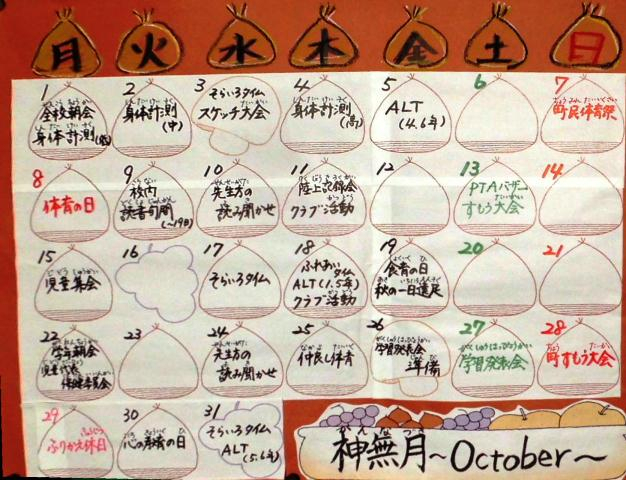 月 火 水 木 金 土 日
1
全校朝会
身体計測(低)
2
身体計測
(中)
3
そらいろタイム
スケッチ大会
4
身体計測
(高)
5
ALT
(4.6年)
6
7
町民体育祭
8
体育の日
9
校内
読書旬間
(~19日)
10
先生方の
読み聞かせ
11
陸上記録会
クラブ活動
12
13
PTAバザー
すもう大会
14
15
児童集会
16
17
そらいろタイム
18
ふれあい
タイム
ALT(1.5年)
クラブ活動
19
食育の日
秋の一日遠足
20
21
22
学年朝会
児童代表
保健委員会
23
24
先生方の
読み聞かせ
25
仲良し体育
26
学習発表会
準備
27
学習発表会
28
町すもう大会
29
ふりかえ休日
30
心の教育の日
31
そらいろタイム
ALT
(5.6年)
かんなづき
神無月~October~